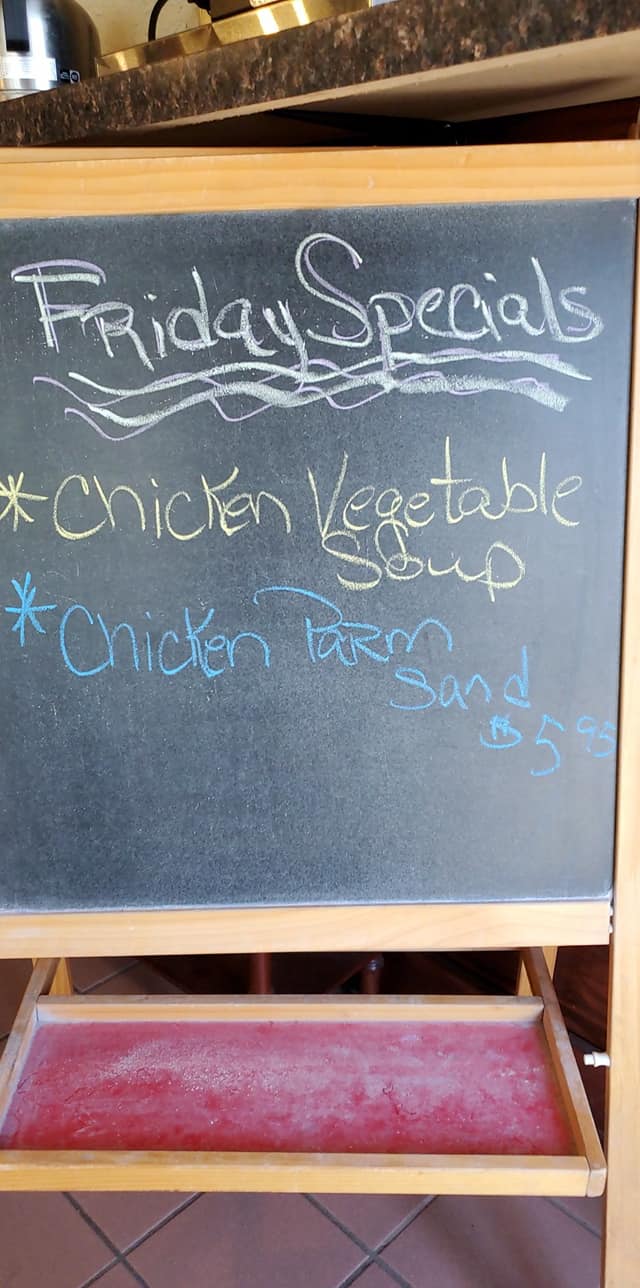 Friday Specials
* Chicken Vegetable
Soup
* Chicken Parm
Sand
$5.95